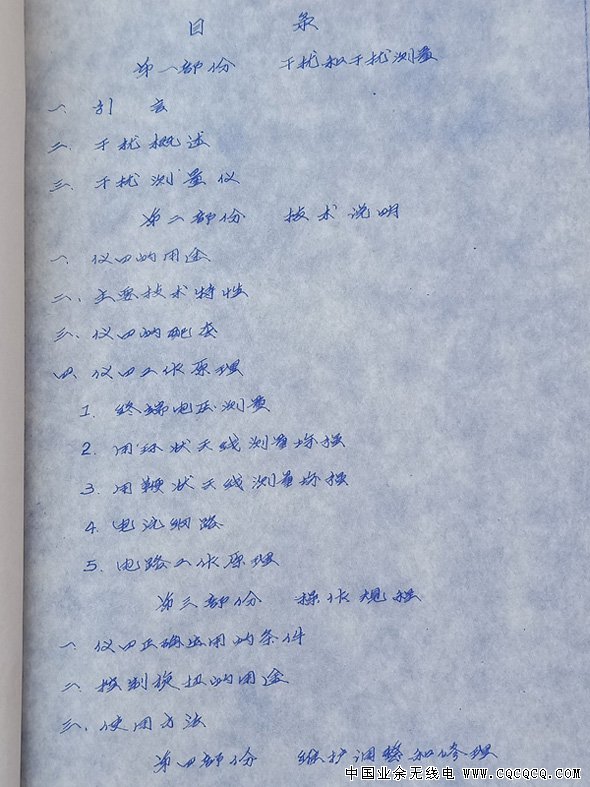 目 录
第一部份 干扰和干扰测量
一. 引 言
二. 干扰概述
三. 干扰测量仪
第二部份 技术说明
一. 仪四的用途
二. 主要技术特性
三. 仪四的配套
四. 仪四工作原理
1. 终端电压测量
2. 用环状天线测量场强
3. 用鞭状天线测量场强
4. 电流网路
5. 电路工作原理
第三部份 操作规程
一. 仪四正确运用的条件
二. 控制旋扭的用途
三. 使用方法
第四部份 维护调整和修理
中国业余无线电 www.cqcqcq.com